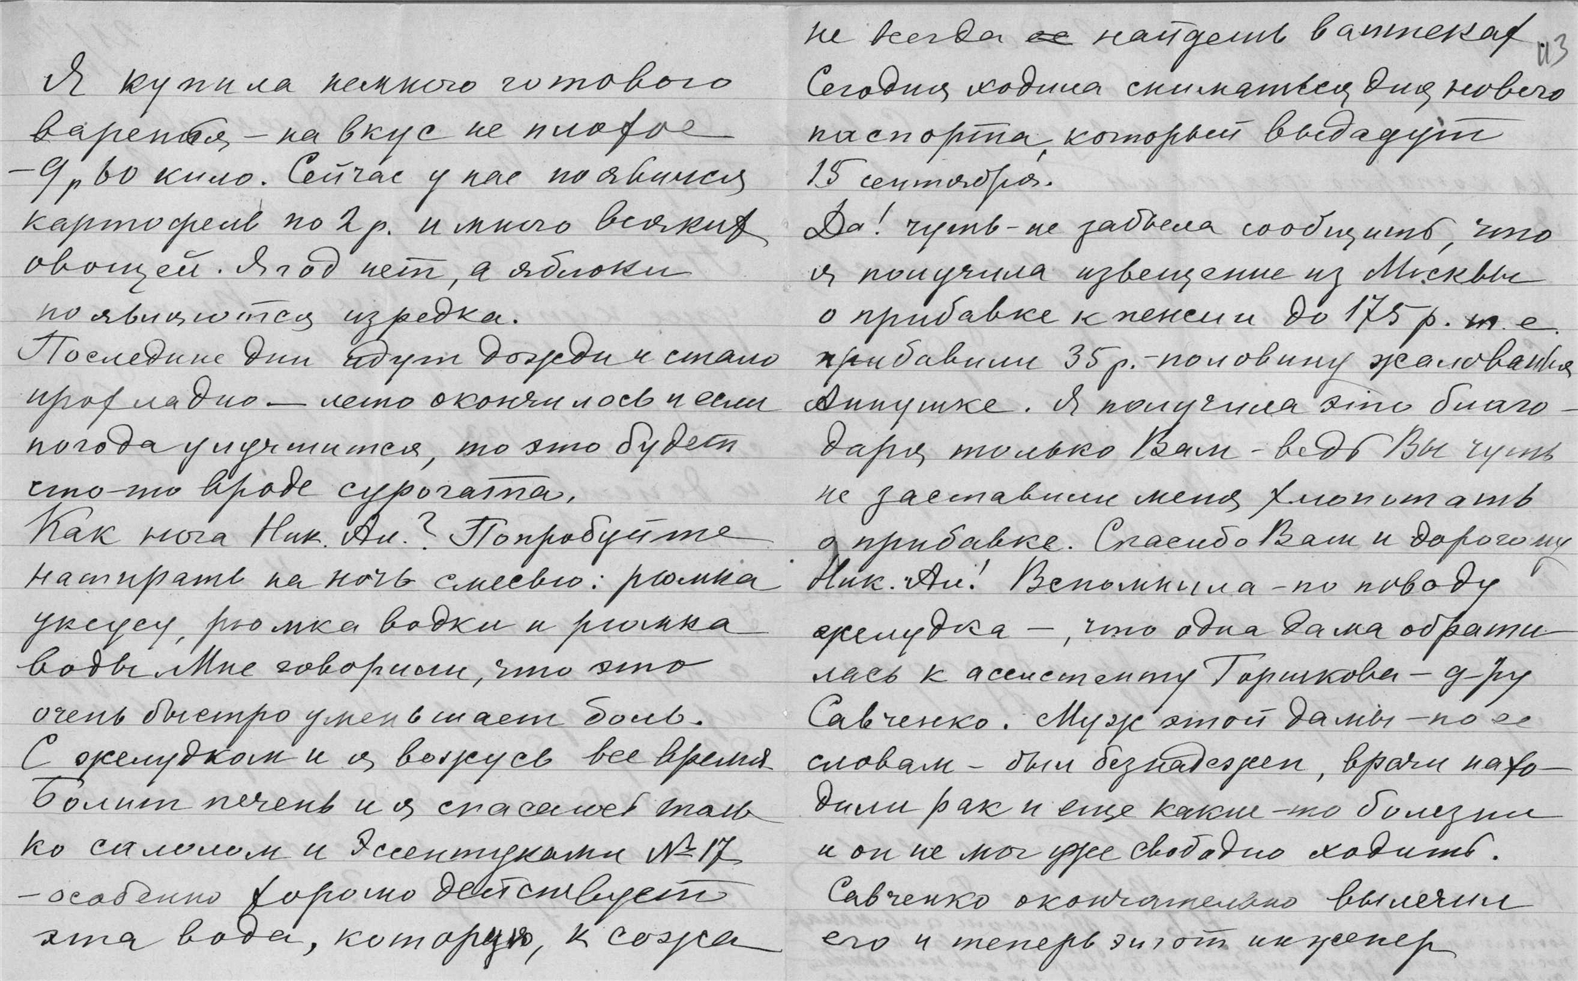 Я купила немного готового
варенья – на вкус не плохое
– 9 р 60 кило. Сейчас у нас появился
картофель по 2 р. и много всяких
овощей. Ягод нет, а яблоки
появляются изредка.
Последние дни идут дожди и стало
прохладно – лето окончилось и если
погода улучшится, то это будет
что-то вроде суррогата.
Как нога Ник. Ал.? Попробуйте
натирать на ночь смесью: рюмка
уксусу, рюмка водки и рюмка
воды. Мне говорили, что это
очень быстро уменьшает боль.
С желудком и я вожусь все время
Болит печень и я спасаюсь толь
ко салолом и Эссентуками № 17
– особенно хорошо действует
эта вода, которую, к сожа
не всегда ее найдешь в аптеках
113
Сегодня ходила сниматься для нового
паспорта, который выдадут
15 сентября.
Да! чуть-не забыла сообщить, что
я получила извещение из Москвы
о прибавке к пенсии до 175 р. т.е.
прибавили 35 р. – половину жалованья
Аннушке. Я получила это благо-
даря только Вам – ведь Вы чуть
не заставили меня хлопотать
о прибавке. Спасибо Вам и дорогому
Ник. Ал! Вспомнила – по поводу
желудка –, что одна дама обрати-
лась к ассистенту Горшкова – д-ру
Савченко. Муж этой дамы – по ее
словам – был безнадежен, врачи нахо-
дили рак и еще какие-то болезни
и он не мог уже свободно ходить.
Савченко окончательно вылечил
его и теперь этот инженер